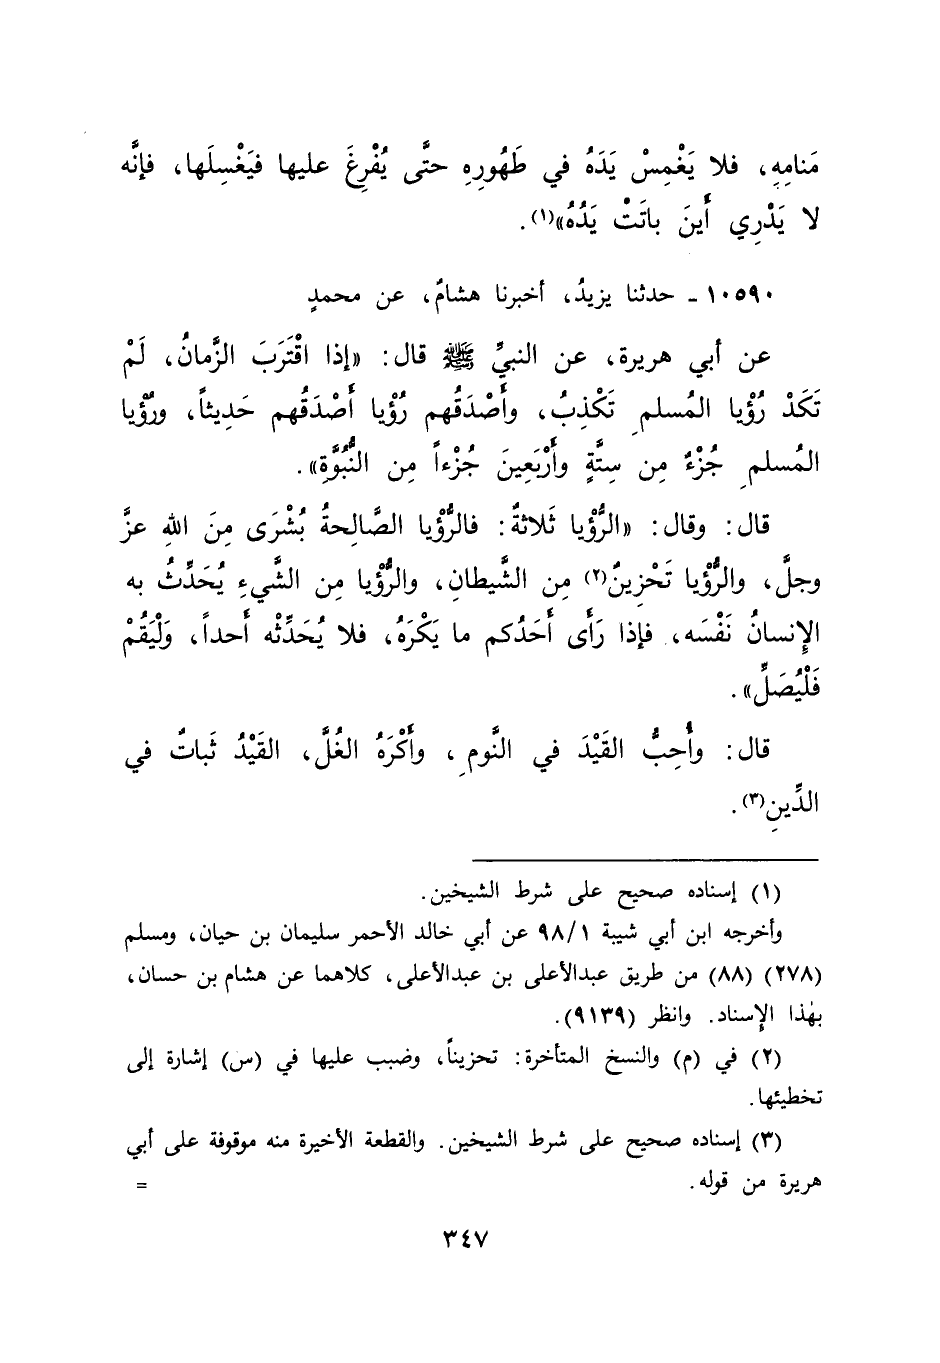 مَنامِهِ، فلا يَغْمِسْ يَدَهُ في طَهُورِهِ حتَّى يُفْرِغَ عليها فيَغْسِلَها، فإنَّه
لا يَدْرِي أَينَ باتَتْ يَدُهُ»(١).
١٠٥٩٠ - حدثنا يزيدُ، أخبرنا هشامٌ، عن محمدٍ
عن أبي هريرة، عن النبيِّ ﷺ قال: «إذا اقْتَرَبَ الزَّمانُ، لَمْ
تَكَدْ رُؤْيا المُسلمِ تَكْذِبُ، وأَصْدَقُهم رُؤْيا أَصْدَقُهم حَدِيثاً، ورُؤْيا
المُسلمِ جُزْءٌ مِن سِتَّةٍ وأَرْبَعِينَ جُزْءاً مِن النُّبُوَّةِ».
قال: وقال: «الرُّؤْيا ثَلاثةٌ: فالرُّؤْيا الصَّالِحةُ بُشْرَى مِنَ اللهِ عزَّ
وجلَّ، والرُّؤْيا تَحْزِينٌ(٢) مِن الشَّيطانِ، والرُّؤْيا مِن الشَّيءِ يُحَدِّثُ به
الإنسانُ نَفْسَه، فإذا رَأَى أَحَدُكم ما يَكْرَهُ، فلا يُحَدِّثْه أَحداً، وَلْيَقُمْ
فَلْيُصَلِّ».
قال: وأُحِبُّ القَيْدَ في النَّومِ، وأَكْرَهُ الغُلَّ، القَيْدُ ثَباتٌ في
الدِّينِ(٣).
(١) إسناده صحيح على شرط الشيخين.
وأخرجه ابن أبي شيبة ٩٨/١ عن أبي خالد الأحمر سليمان بن حيان، ومسلم
(٢٧٨) (٨٨) من طريق عبدالأعلى بن عبدالأعلى، كلاهما عن هشام بن حسان،
بهٰذا الإسناد. وانظر (٩١٣٩).
(٢) في (م) والنسخ المتأخرة: تحزيناً، وضبب عليها في (س) إشارة إلى
تخطيئها.
(٣) إسناده صحيح على شرط الشيخين. والقطعة الأخيرة منه موقوفة على أبي
هريرة من قوله. =
٣٤٧